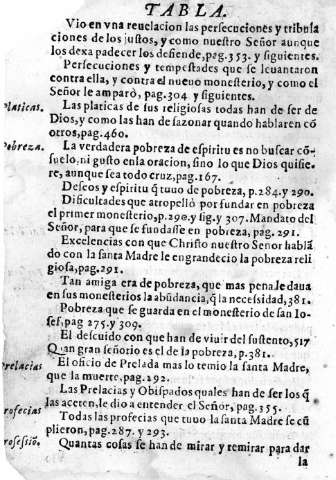 TABLA.
Vio en vna reuelacion las persecuciones y tribula
ciones de los justos, y como nuestro Señor aunque
los dexa padecer los defiende, pag. 353. y siguientes.
Persecuciones y tempestades que se leuantaron
contra ella, y contra el nueuo monesterio, y como el
Señor le amparò, pag. 304 y siguientes.
Platicas. Las platicas de sus religiosas todas han de ser de
Dios, y como las han de sazonar quando hablaren cõ
otros, pag. 460.
Pobreza. La verdadera pobreza de espiritu es no buscar cõ-
suelo, ni gusto en la oracion, sino lo que Dios quisie-
re, aunque sea todo cruz, pag. 167.
Deseos y espiritu q̃ tuuo de pobreza, p. 284. y 290.
Dificultades que atropellò por fundar en pobreza
el primer monesterio, p. 290. y sig. y 307. Mandato del
Señor, para que se fundasse en pobreza, pag. 291.
Excelencias con que Christo nuestro Señor hablã
do con la santa Madre le engrandecio la pobreza reli
giosa, pag. 291.
Tan amiga era de pobreza, que mas pena le daua
en sus monesterios la abũdancia, q̃ la necesidad, 381.
Pobreza que se guarda en el monesterio de san Io-
sef, pag 275. y 309.
El descuido con que han de viuir del sustento, 517
Quan gran señorio es el de la pobreza, p. 381.
Prelacias El oficio de Prelada mas lo temio la santa Madre,
que la muerte, pag. 292.
Las Prelacias y Obispados quales han de ser los q̃
las aceten, le dio a entender el Señor, pag. 355.
Profecias Todas las profecias que tuuo la santa Madre se cũ
plieron, pag. 287. y 293.
Professiõ. Quantas cosas se han de mirar y remirar para dar
la